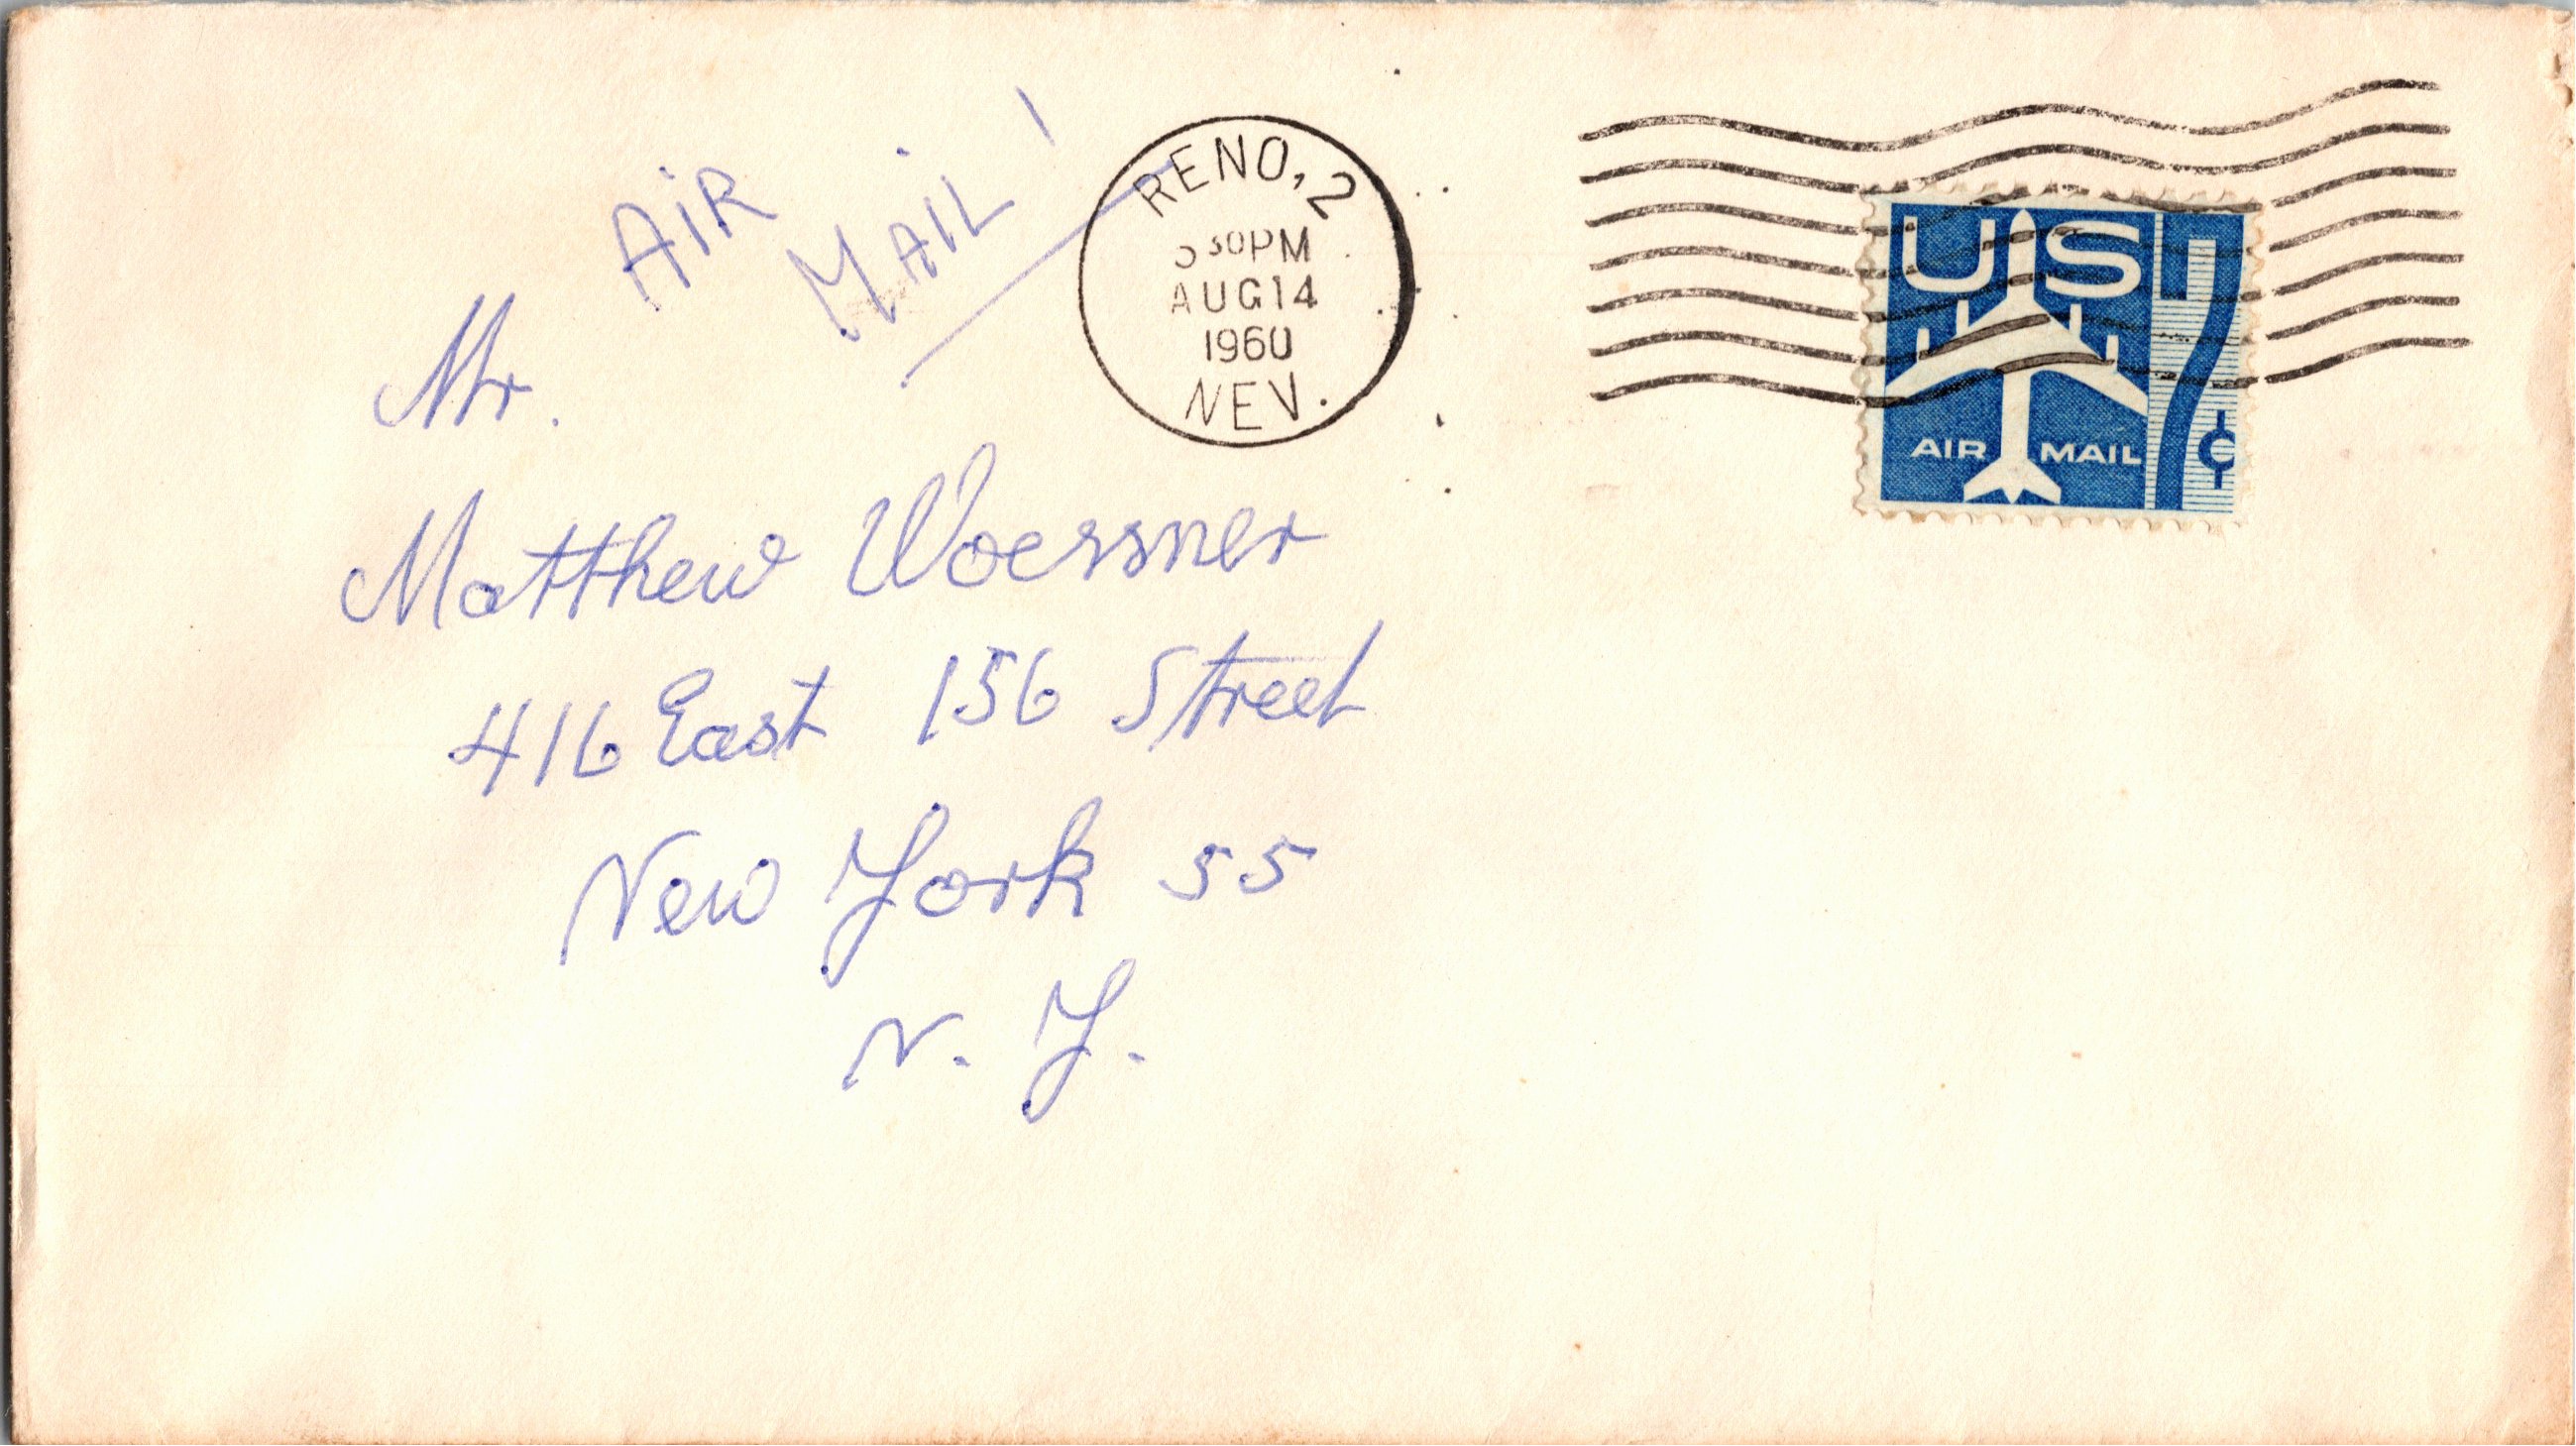 AiR
MAIL!
RENO, 2
30PM
AUG14
1960
NEV.
US 7¢
AIR MAIL
Mr.
Matthew Woessner
416 East 156 Street
New York 55
N. Y.